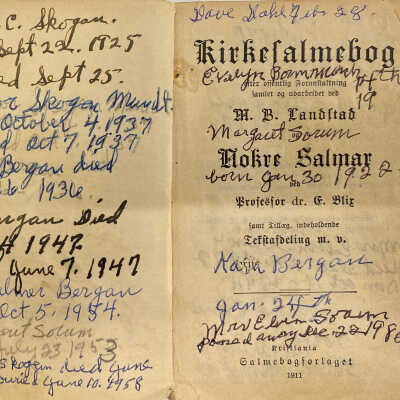 C. Skogan.
Sept 22, 1925
ed Sept 25.
or Skogan Mundt.
October 4, 1937
d Oct 7, 1937
Bergan died
6 1936.
ergan Died
1947.
June 7, 1947
almer Bergan
Oct, 5, 1954.
Sorum
July 23, 1953
Skogan died June
buried June 10, 1958
Dave Feb. 28.
Kirkesalmebog
Evelyn
efter offentlig Foranstaltning
samlet og udarbeidet ved
19
M. B. Landstad
Margaret Sorum
Nokre Salmar
born Jan 30 1922
ved
Professor dr. E. Blix
samt Tillæg, indeholdende
Tekstafdeling m. v.
Karn Bergan
Jan. 24th
Mrs Edwin Sorum
passed away Dec 22 1986
Kristiania
Salmebogforlaget
1911